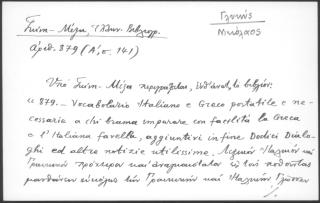 Γλυκύς
Νικόλαος
Γκίνη - Μέξα Ἑλλην. Βιβλιογρ.
ἀριθ. 879 (Α', σ. 141)
Ὑπὸ Γκίνη - Μέξα περιγράφεται, τὸ βιβλίον:
« 879. — Vocabolario Italiano e Greco portatile e ne-
cessario a chi brama imparare con facilità la Greca
e l'Italiana favella, aggiuntivi in fine Dodici Dialo-
ghi ed altre notizie utilissime. Λεξικὸν Ἰταλικὸν καὶ
Γραικικὸν πρόχειρον καὶ ἀναγκαιότατον εἰς τοὺς ποθοῦντας
μανθάνειν εὐκόλως τὴν Γραικικὴν καὶ Ἰταλικὴν Γλῶσσαν